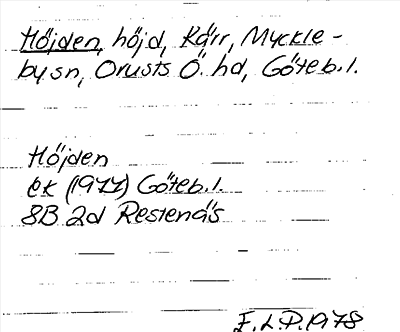 Höjden, höjd, Kärr, Myckle-
by sn, Orusts Ö. hd, Göteb. l.
Höjden
ek (1977) Göteb. l.
8B 2d Restenäs
E.L.P. 1978